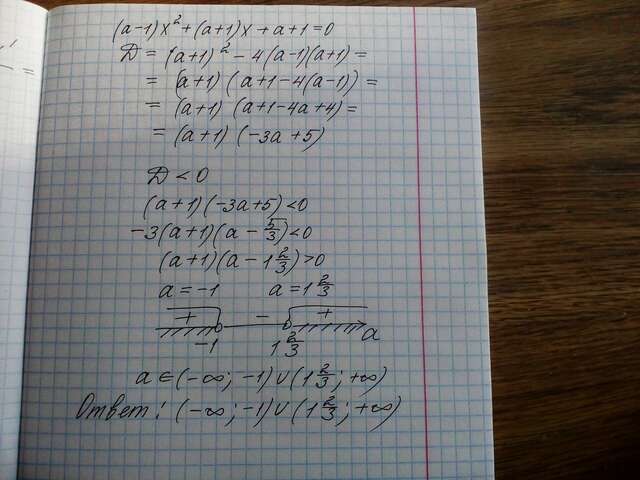 (a-1)x² + (a+1)x + a + 1 = 0
D = (a+1)² - 4(a-1)(a+1) =
= (a+1) (a+1-4(a-1)) =
= (a+1) (a+1-4a+4) =
= (a+1) (-3a+5)
D < 0
(a+1)(-3a+5) < 0
-3(a+1)(a - 5/3) < 0
(a+1)(a - 1 2/3) > 0
a = -1 a = 1 2/3
+ - + a
-1 1 2/3
a ∈ (-∞; -1) ∪ (1 2/3; +∞)
Ответ: (-∞; -1) ∪ (1 2/3; +∞)